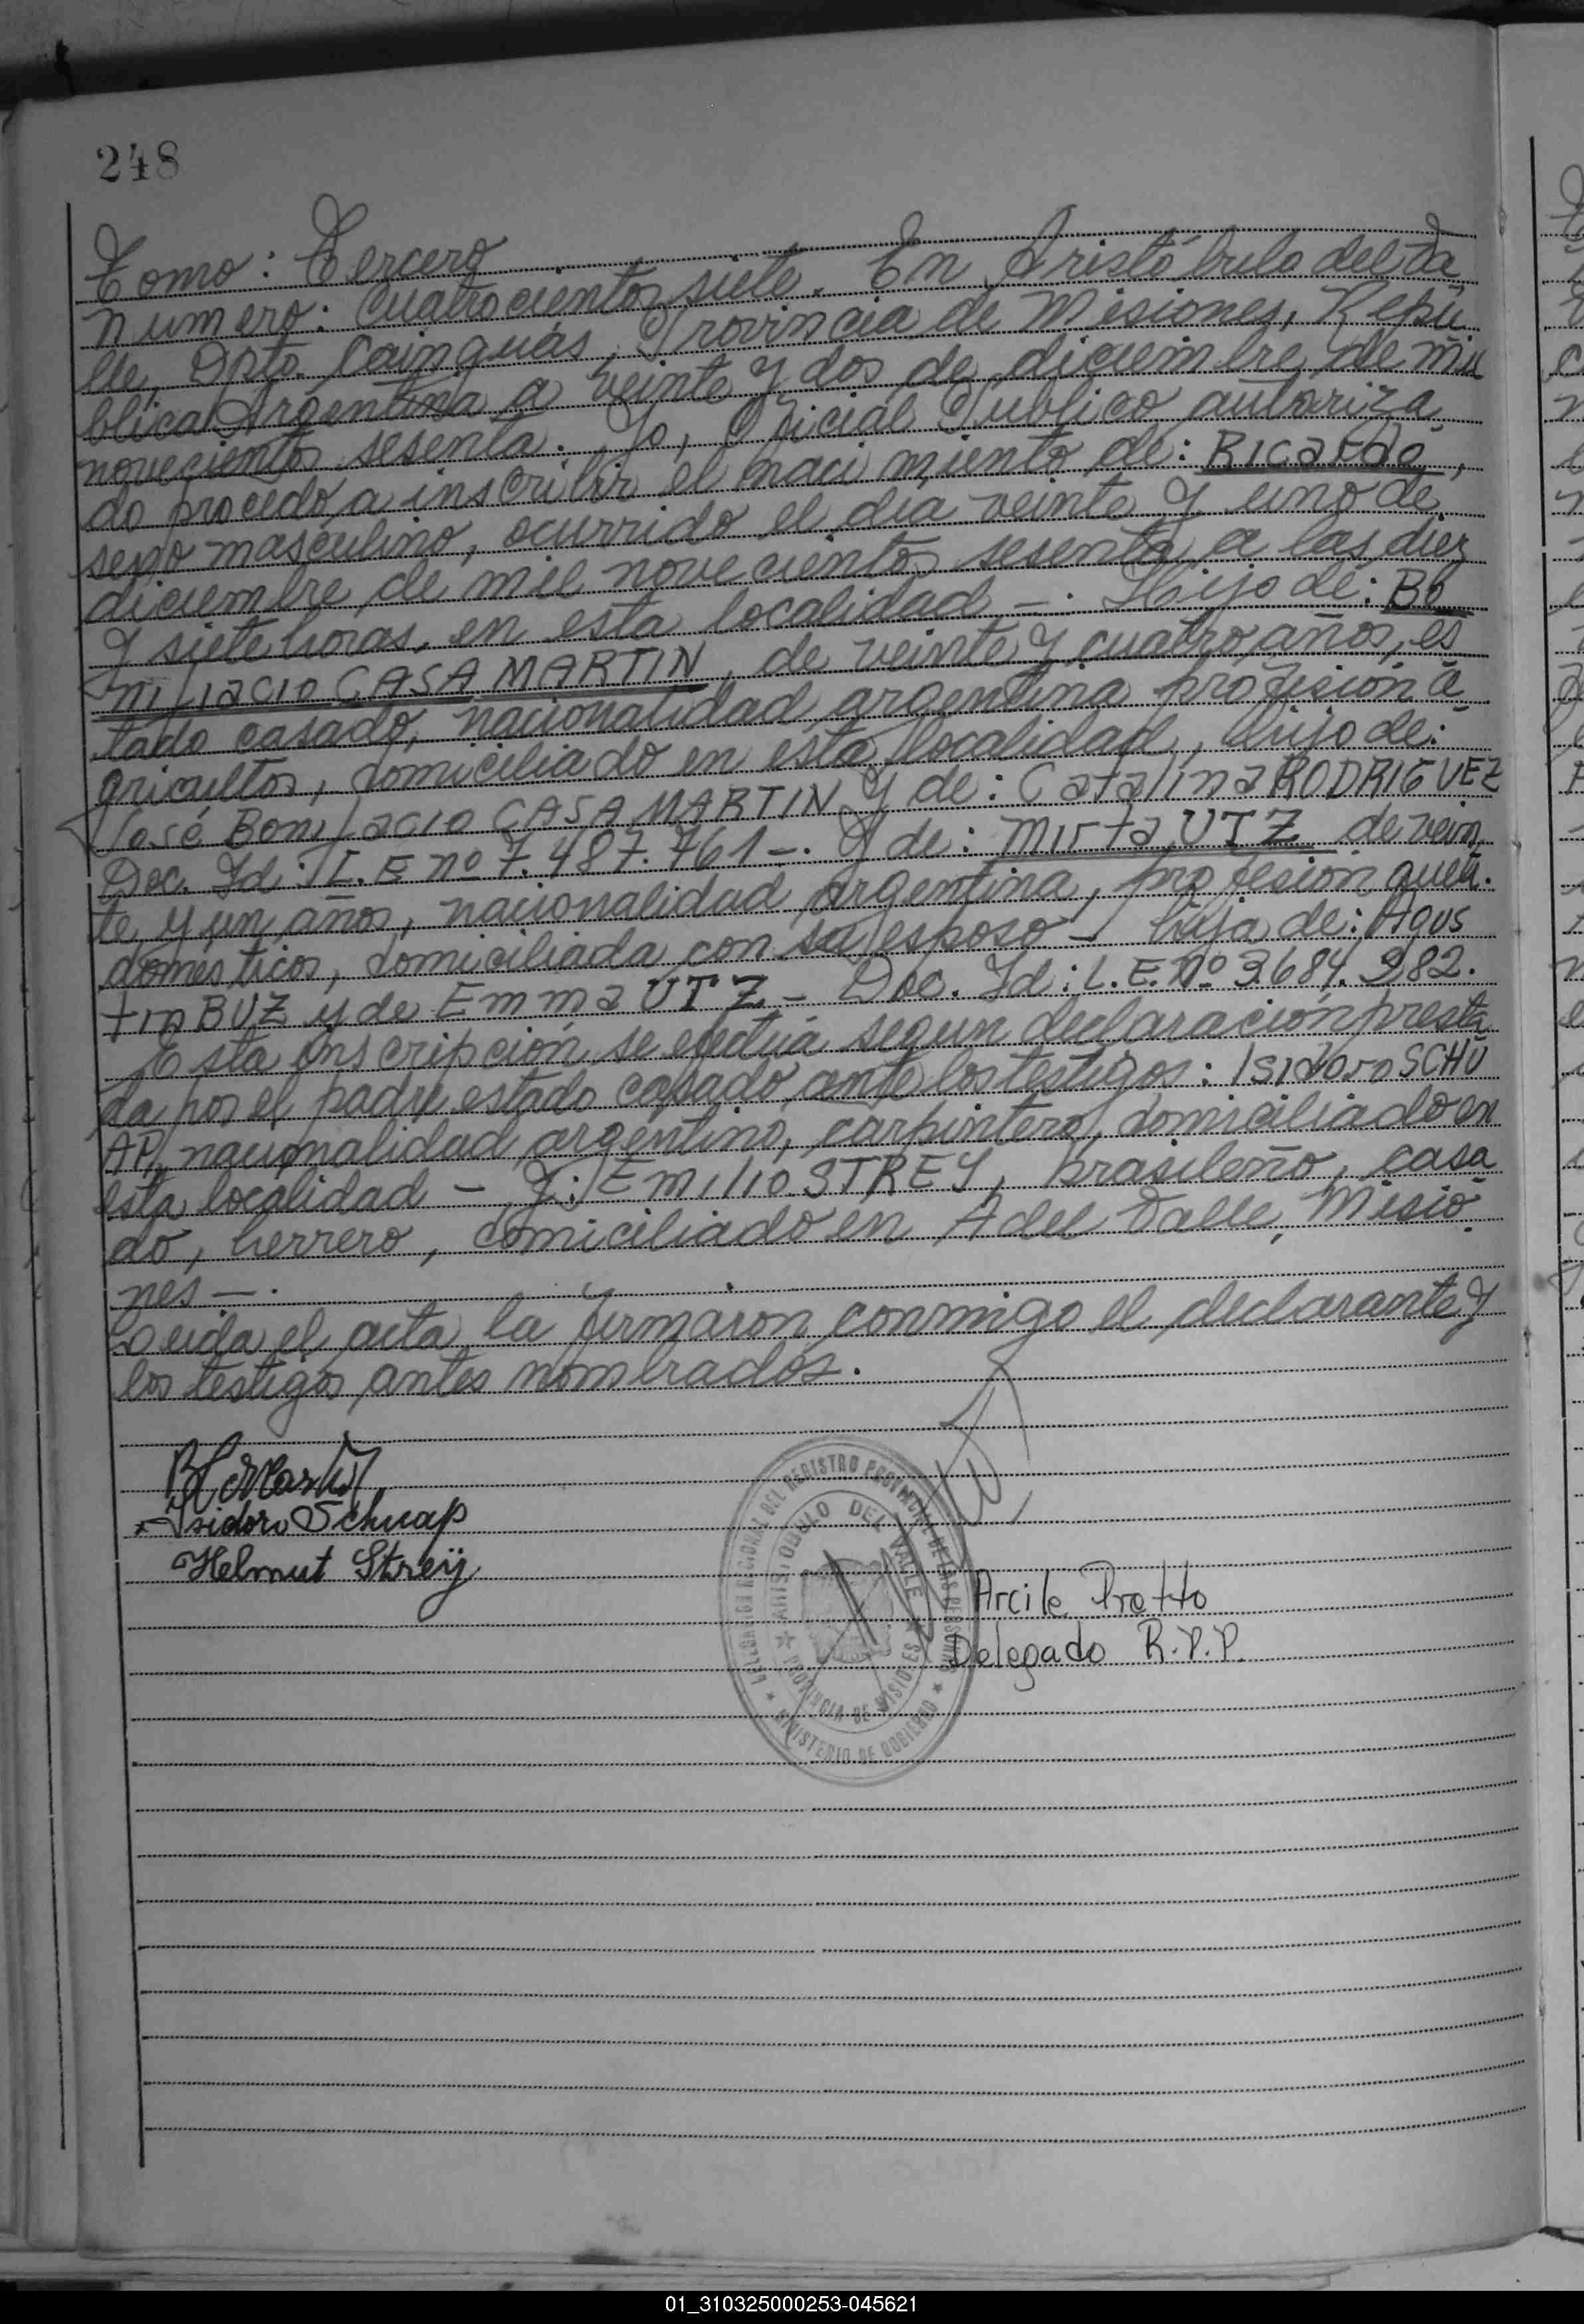 248
Tomo: Tercero
Numero: Cuatrocientos siete. En Aristóbulo del Va
lle, Dpto. Cainguás, Provincia de Misiones, Repú
blica Argentina a veinte y dos de diciembre de mil
novecientos sesenta. Yo, Oficial Publico autoriza
do procedo a inscribir el naci miento de: Ricardo,
sexo masculino, ocurrido el día veinte y uno de
diciembre de mil novecientos sesenta a las diez
y siete horas, en esta localidad -. Hijo de: Bo
nifacio CASA MARTIN, de veinte y cuatro años, es
tado casado, nacionalidad argentina profesion a
gricultor, domiciliado en esta localidad, hijo de:
José Bonifacio CASA MARTIN y de: Catalina RODRIGUEZ
Doc. Id: L.E nº 7.487.761-. y de: Mirta UTZ de vein
te y un años, nacionalidad argentina, profesion queh.
domésticos, domiciliada con su esposo - hija de: Agus
tin BUZ y de Emma UTZ - Doc. Id: L.E. Nº 3.684.982.
Esta inscripción se efectúa segun declaración presta
da por el padre estado casado ante los testigos: Isidoro SCHU
AP, nacionalidad argentino, carpintero, domiciliado en
esta localidad - Y: Emilio STREY, brasileño, casa
do, herrero, domiciliado en A del Valle, Misio
nes -.
Leida el acta la firmaron conmigo el declarante y
los testigos antes nombrados.
Isidoro Schuap
Helmut Streÿ
DELEGACION REGIONAL DEL REGISTRO PROVINCIAL DE LAS PERSONAS
ARISTOBULO DEL VALLE
PROVINCIA DE MISIONES
MINISTERIO DE GOBIERNO
Arcile Protto
Delegado R.P.P.
01_310325000253-045621